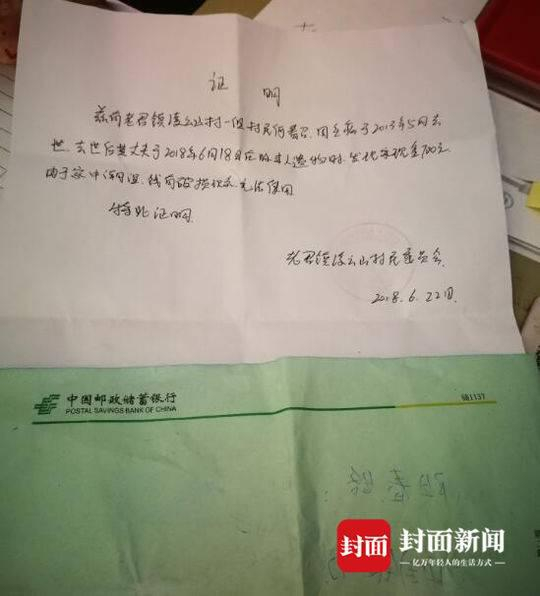 证 明
兹有老君镇凌云山村一组村民何 因病于2013年5月去
世,去世后其丈夫于2018年6月18日在收本人遗物时,发现其现金700元
由于家中潮湿,钱有破损现象,无法使用
特此证明
老君镇凌云山村民委员会
2018.6.22日
中国邮政储蓄银行
POSTAL SAVINGS BANK OF CHINA
6B1137
封面
封面新闻
亿万年轻人的生活方式